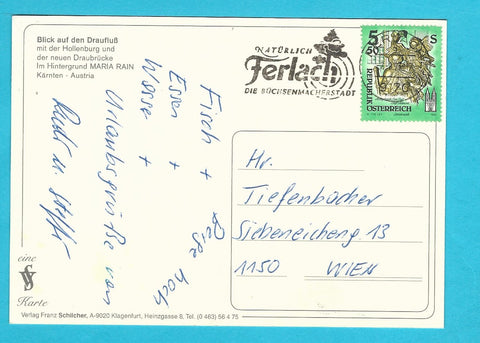 Blick auf den Draufluß
mit der Hollenburg und
der neuen Draubrücke
Im Hintergrund MARIA RAIN
Kärnten - Austria
NATÜRLICH
Ferlach
DIE BÜCHSENMACHERSTADT
5
50
S
REPUBLIK
ÖSTERREICH
Fisch +
Essen +
Wasser +
Berge hoch
Urlaubsgrüße von
Rudi u. Steffi
Hr.
Tiefenbacher
Siebeneicheng 13
1150 WIEN
eine
Karte
Verlag Franz Schilcher, A-9020 Klagenfurt, Heinzgasse 8, Tel. (0 463) 56 4 75